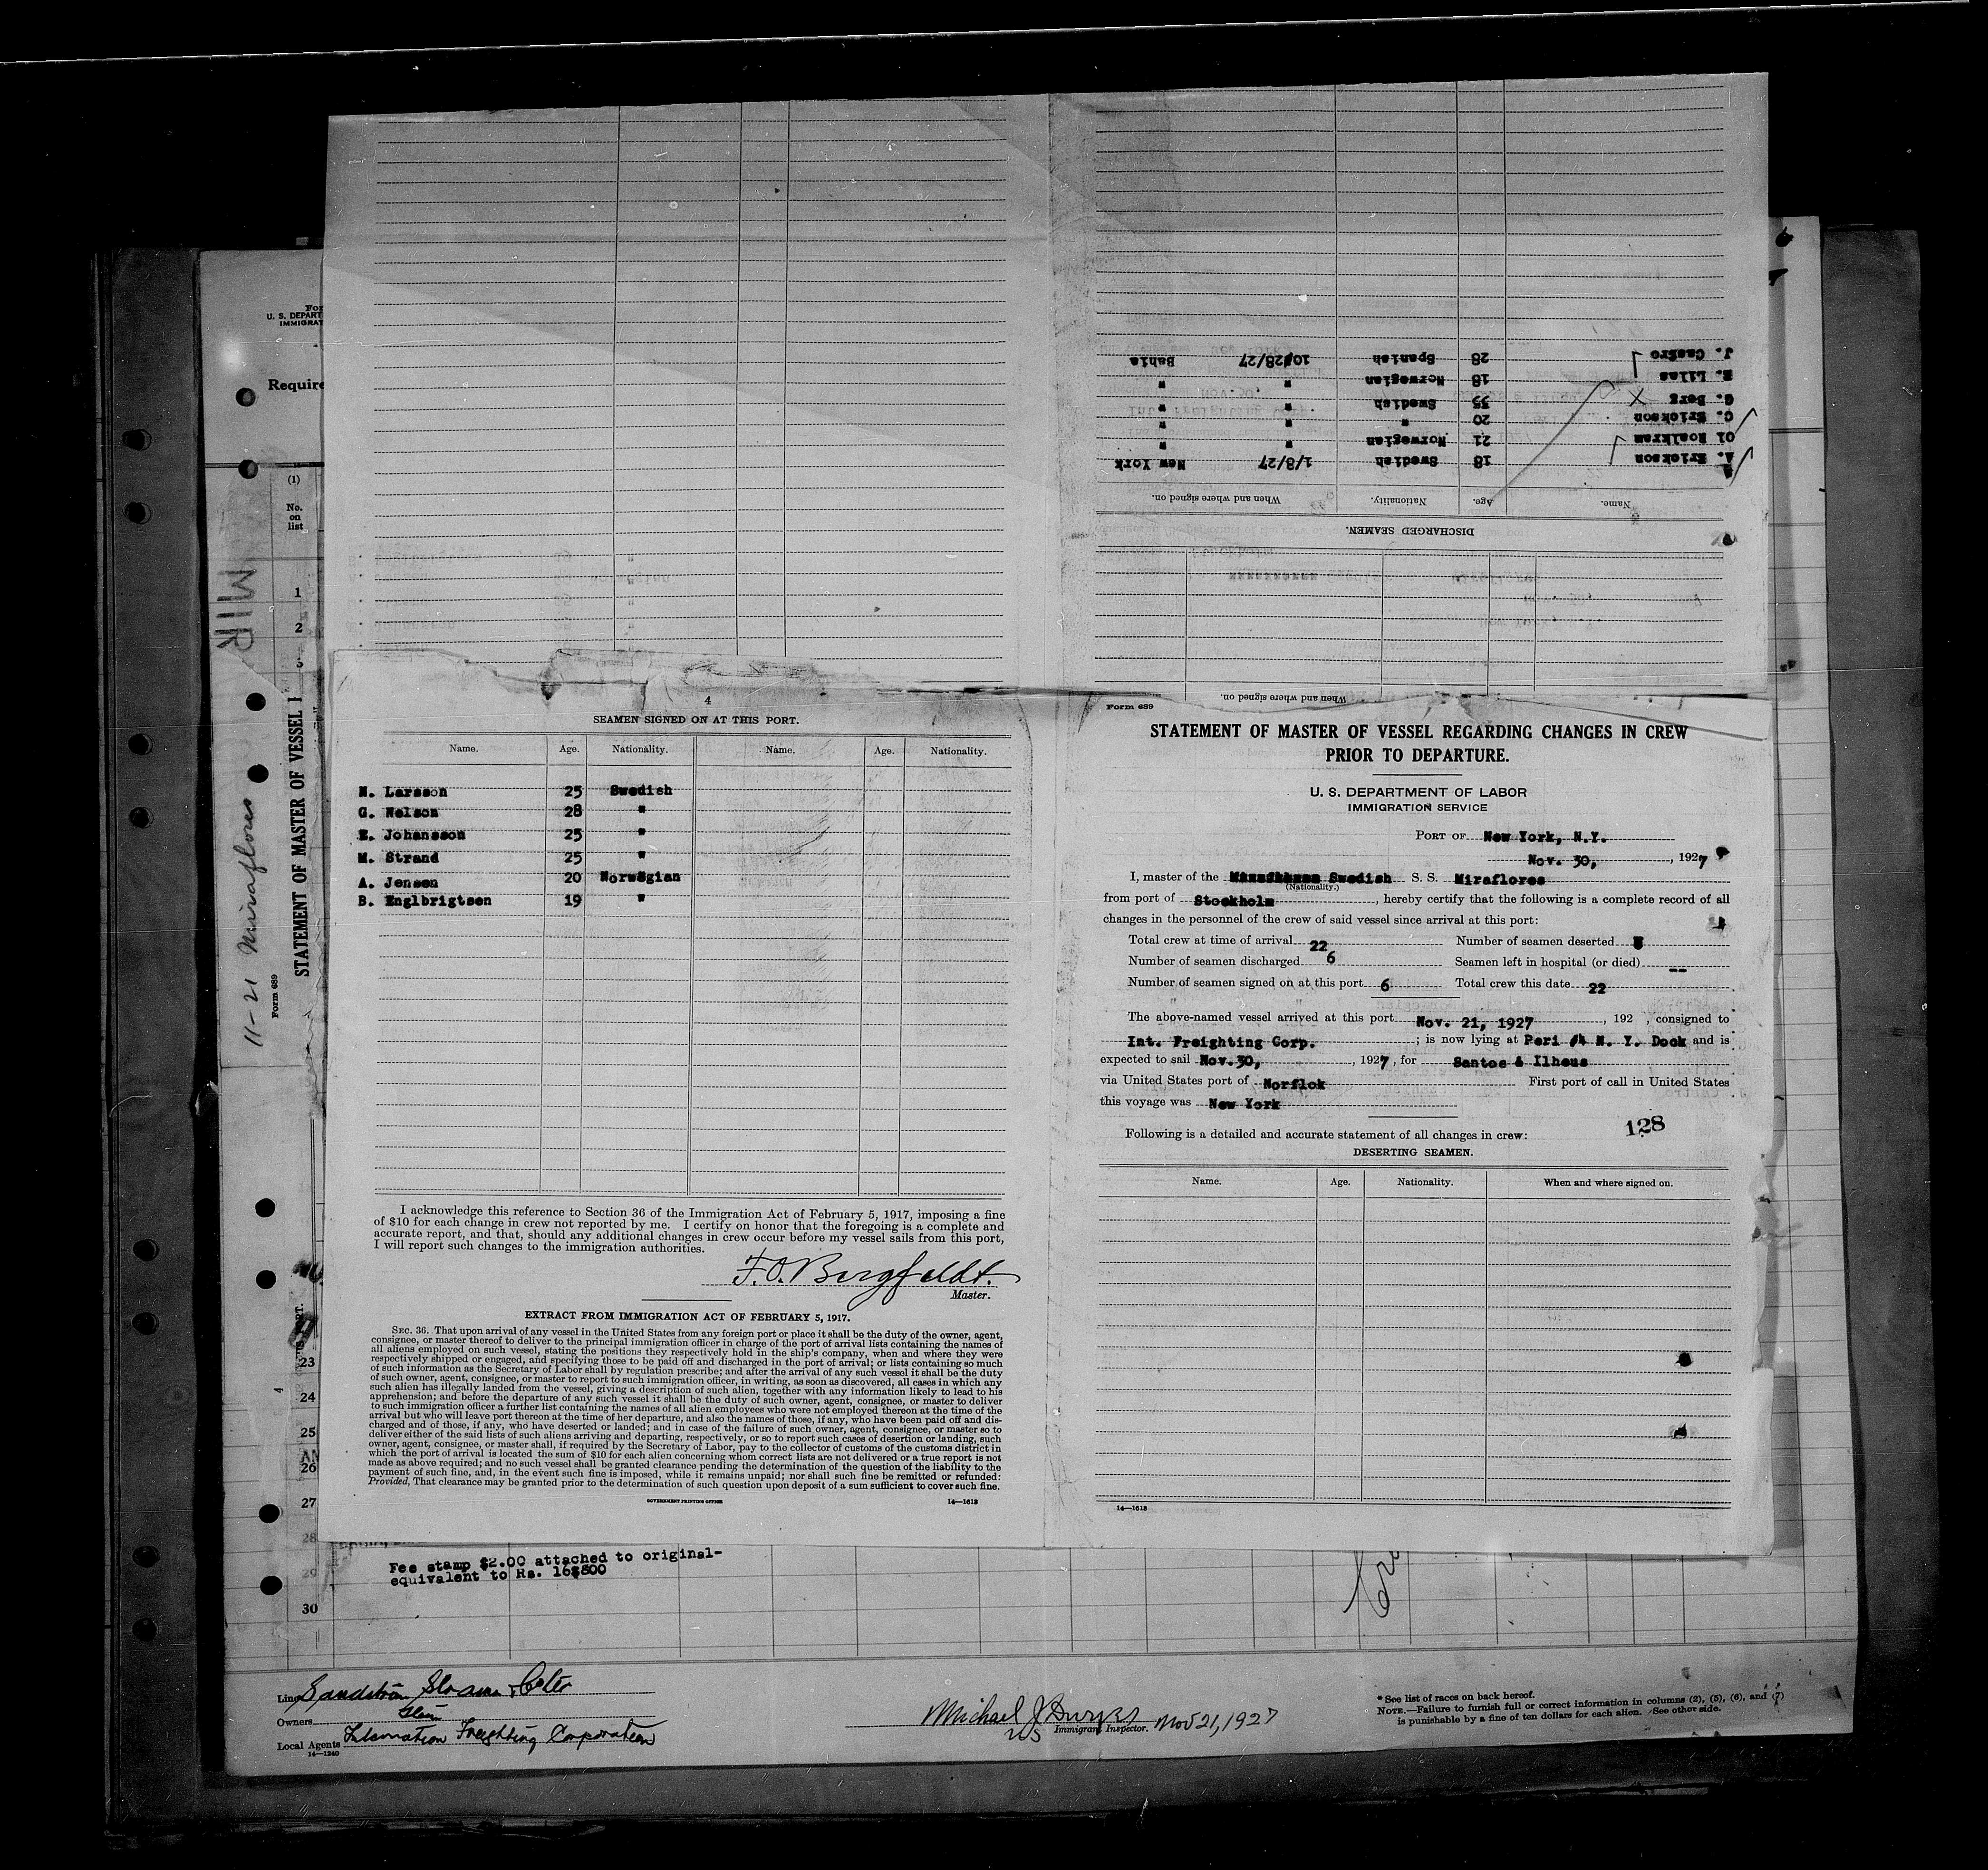 For
U. S. DEPART
IMMIGRAT
Require
(1)
No.
on
list
1
2
MIR
11-21 Miraflores
Form 689
STATEMENT OF MASTER OF VESSEL
DISCHARGED SEAMEN.
Name. Age. Nationality. When and where signed on.
A. Erickson 18 Swedish 1/8/27 New York
Ol Roalkram 21 Norwegian " "
C. Erickson 20 " " "
G. Berg 35 Swedish " "
E. Lilas 18 Norwegian " "
J. Castro 28 Spanish 10/28/27 Bahia
When and where signed on.
4
SEAMEN SIGNED ON AT THIS PORT.
Name. Age. Nationality. Name. Age. Nationality.
N. Larsson 25 Swedish
G. Nelson 28 "
E. Johansson 25 "
M. Strand 25 "
A. Jensen 20 Norwegian
B. Englbrigtsen 19 "
I acknowledge this reference to Section 36 of the Immigration Act of February 5, 1917, imposing a fine
of $10 for each change in crew not reported by me. I certify on honor that the foregoing is a complete and
accurate report, and that, should any additional changes in crew occur before my vessel sails from this port,
I will report such changes to the immigration authorities.
F. O. Bergfeldt.
Master.
EXTRACT FROM IMMIGRATION ACT OF FEBRUARY 5, 1917.
SEC. 36. That upon arrival of any vessel in the United States from any foreign port or place it shall be the duty of the owner, agent,
consignee, or master thereof to deliver to the principal immigration officer in charge of the port of arrival lists containing the names of
all aliens employed on such vessel, stating the positions they respectively hold in the ship's company, when and where they were
respectively shipped or engaged, and specifying those to be paid off and discharged in the port of arrival; or lists containing so much
of such information as the Secretary of Labor shall by regulation prescribe; and after the arrival of any such vessel it shall be the duty
of such owner, agent, consignee, or master to report to such immigration officer, in writing, as soon as discovered, all cases in which any
such alien has illegally landed from the vessel, giving a description of such alien, together with any information likely to lead to his
apprehension; and before the departure of any such vessel it shall be the duty of such owner, agent, consignee, or master to deliver
to such immigration officer a further list containing the names of all alien employees who were not employed thereon at the time of the
arrival but who will leave port thereon at the time of her departure, and also the names of those, if any, who have been paid off and dis-
charged and of those, if any, who have deserted or landed; and in case of the failure of such owner, agent, consignee, or master so to
deliver either of the said lists of such aliens arriving and departing, respectively, or so to report such cases of desertion or landing, such
owner, agent, consignee, or master shall, if required by the Secretary of Labor, pay to the collector of customs of the customs district in
which the port of arrival is located the sum of $10 for each alien concerning whom correct lists are not delivered or a true report is not
made as above required; and no such vessel shall be granted clearance pending the determination of the question of the liability to the
payment of such fine, and, in the event such fine is imposed, while it remains unpaid; nor shall such fine be remitted or refunded:
Provided, That clearance may be granted prior to the determination of such question upon deposit of a sum sufficient to cover such fine.
GOVERNMENT PRINTING OFFICE 14—1618
Form 689
STATEMENT OF MASTER OF VESSEL REGARDING CHANGES IN CREW
PRIOR TO DEPARTURE.
U. S. DEPARTMENT OF LABOR
IMMIGRATION SERVICE
PORT OF New York, N.Y.
Nov. 30, , 1927
I, master of the Swedish S. S. Miraflores
(Nationality.)
from port of Stockholm , hereby certify that the following is a complete record of all
changes in the personnel of the crew of said vessel since arrival at this port:
Total crew at time of arrival 22 Number of seamen deserted
Number of seamen discharged 6 Seamen left in hospital (or died) --
Number of seamen signed on at this port 6 Total crew this date 22
The above-named vessel arrived at this port Nov. 21, 1927 , 192 , consigned to
Int. Freighting Corp. ; is now lying at Peri #4 N. Y. Dock and is
expected to sail Nov.30, , 1927, for Santos & Ilheus
via United States port of Norflok First port of call in United States
this voyage was New York
128
Following is a detailed and accurate statement of all changes in crew:
DESERTING SEAMEN.
Name. Age. Nationality. When and where signed on.
14—1618
23
4
24
25
26
27
28
29
30
Fee stamp $2.00 attached to original-
equivalent to Rs. 16$800
Line
Owners
Local Agents Internation Freighting Corporation
14—1240
Michael J
Immigrant Inspector. Nov 21, 1927
* See list of races on back hereof.
NOTE.—Failure to furnish full or correct information in columns (2), (5), (6), and (7)
is punishable by a fine of ten dollars for each alien. See other side.